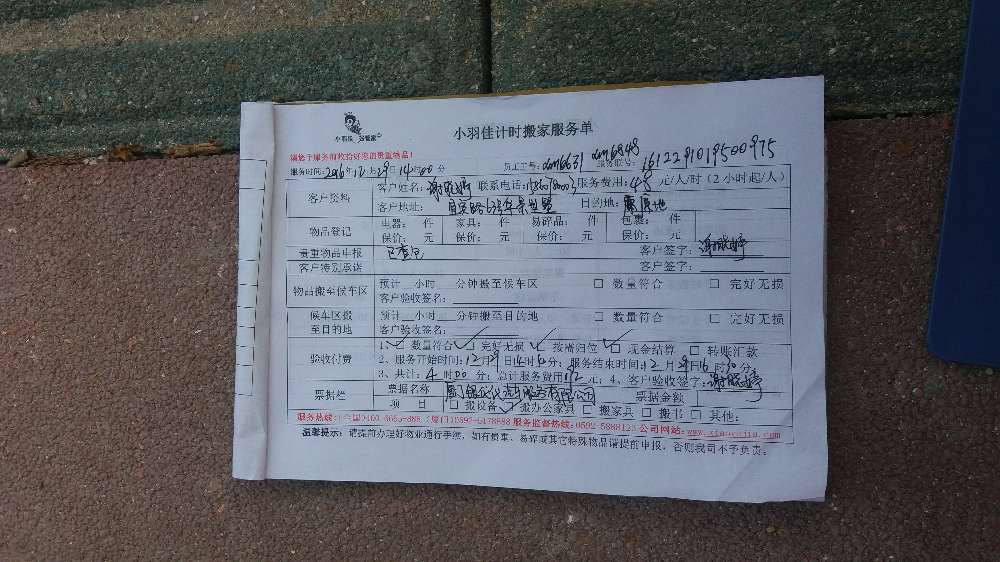 小羽佳计时搬家服务单
请您于服务前收拾好您的贵重物品!
服务时间:2016年12月29日14时00分 员工工号: 服务联号:161229101950097 5
客户资料 客户姓名: 联系电话: 服务费用:48元/人/时(2小时起/人)
客户地址: 目的地:
物品登记 电器: 件 家具: 件 易碎品: 件 包裹: 件
保价: 元 保价: 元 保价: 元 保价: 元
贵重物品申报 客户签字:
客户特别承诺 客户签字:
物品搬至候车区 预计__小时__分钟搬至候车区 □ 数量符合 □ 完好无损
客户验收签名:
候车区搬至目的地 预计__小时__分钟搬至目的地 □ 数量符合 □ 完好无损
客户验收签名:
验收付费 1、□ 数量符合 □ 完好无损 □ 按需归位 □ 现金结算 □ 转账汇款
2、服务开始时间:12月29日14时 分; 服务结束时间:12月29日16时30分;
3、共计:4时00分; 总计服务费用:192元; 4、客户验收签字:
票据栏 票据名称 票据金额
项 目 □ 搬设备 □ 搬办公家具 □ 搬家具 □ 搬书 □ 其他:
服务热线:(全国)400-6655-888 (厦门)0592-5178888 服务监督热线:0592-5888123 公司网站:www.xiaoyujia.com
温馨提示:请提前办理好物业通行手续,如有贵重、易碎或其它特殊物品请提前申报,否则我司不予负责。